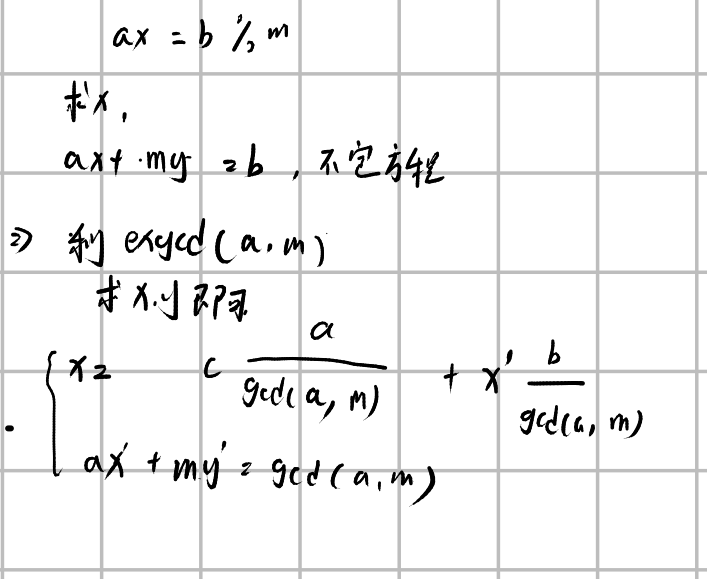 ax = b % m
求x,
ax + my = b, 不定方程
=> 利 exgcd(a, m)
求 x.y 即可
{ x = c a / gcd(a, m) + x' b / gcd(a, m)
ax' + my' = gcd(a, m)